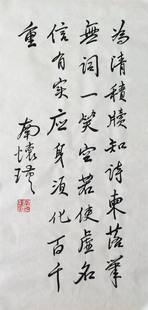 為清積牘知詩柬落筆
無詞一笑空若使虛名
信有实应身須化百千
重
南懷瑾